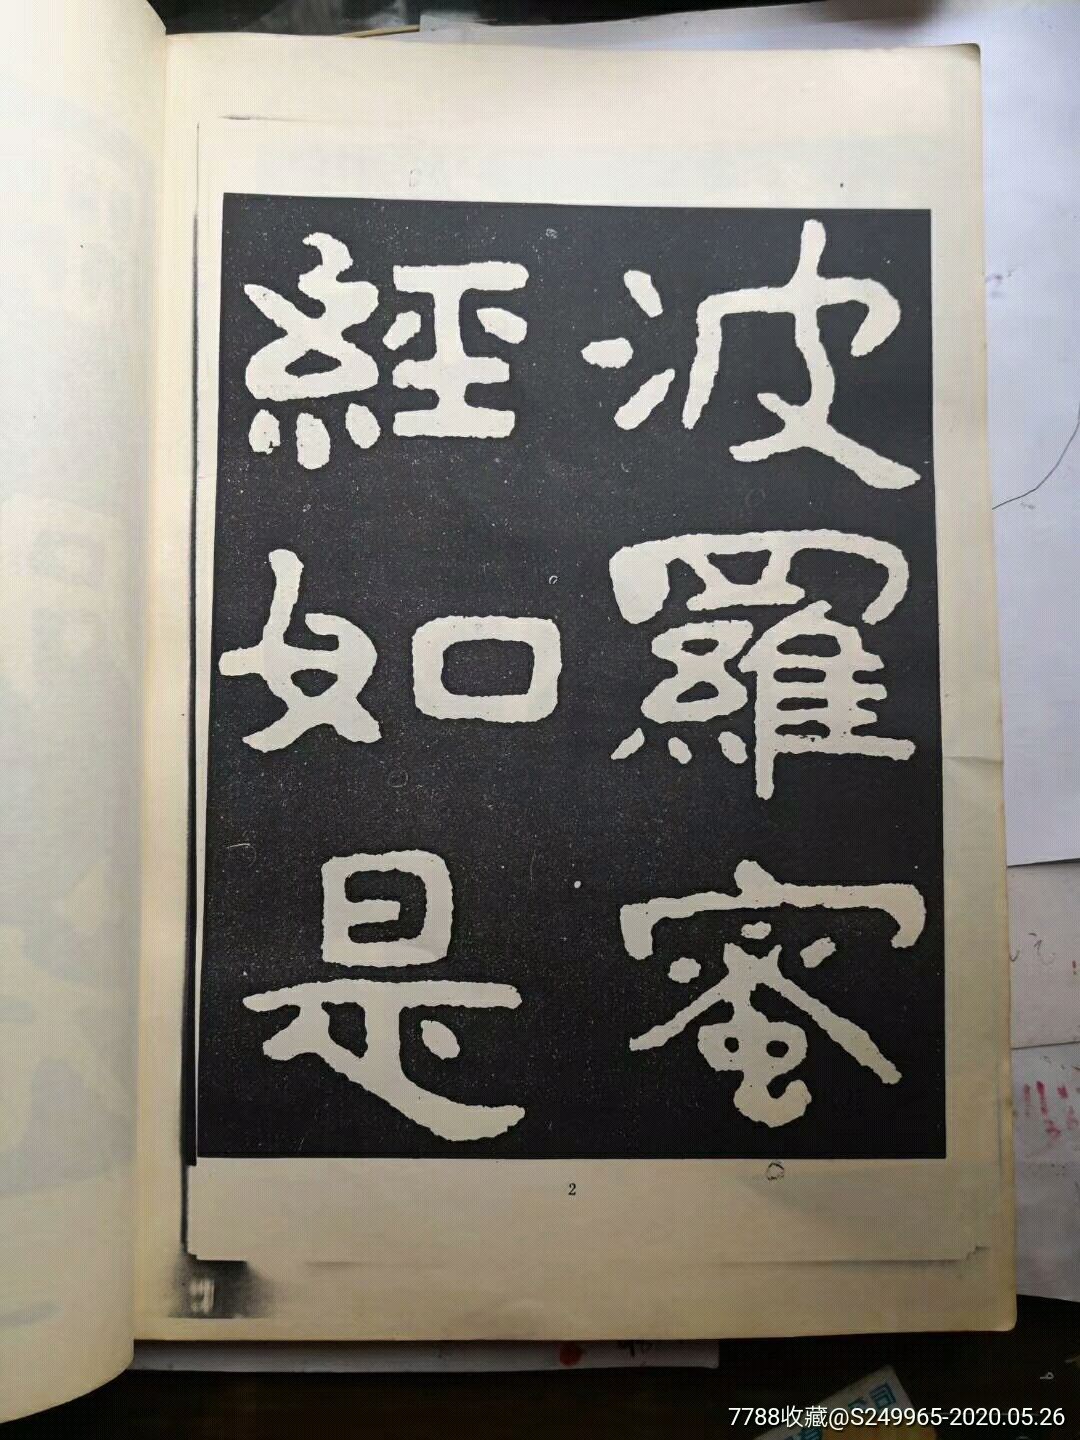 波羅蜜
經如是
2
7788收藏@S249965-2020.05.26